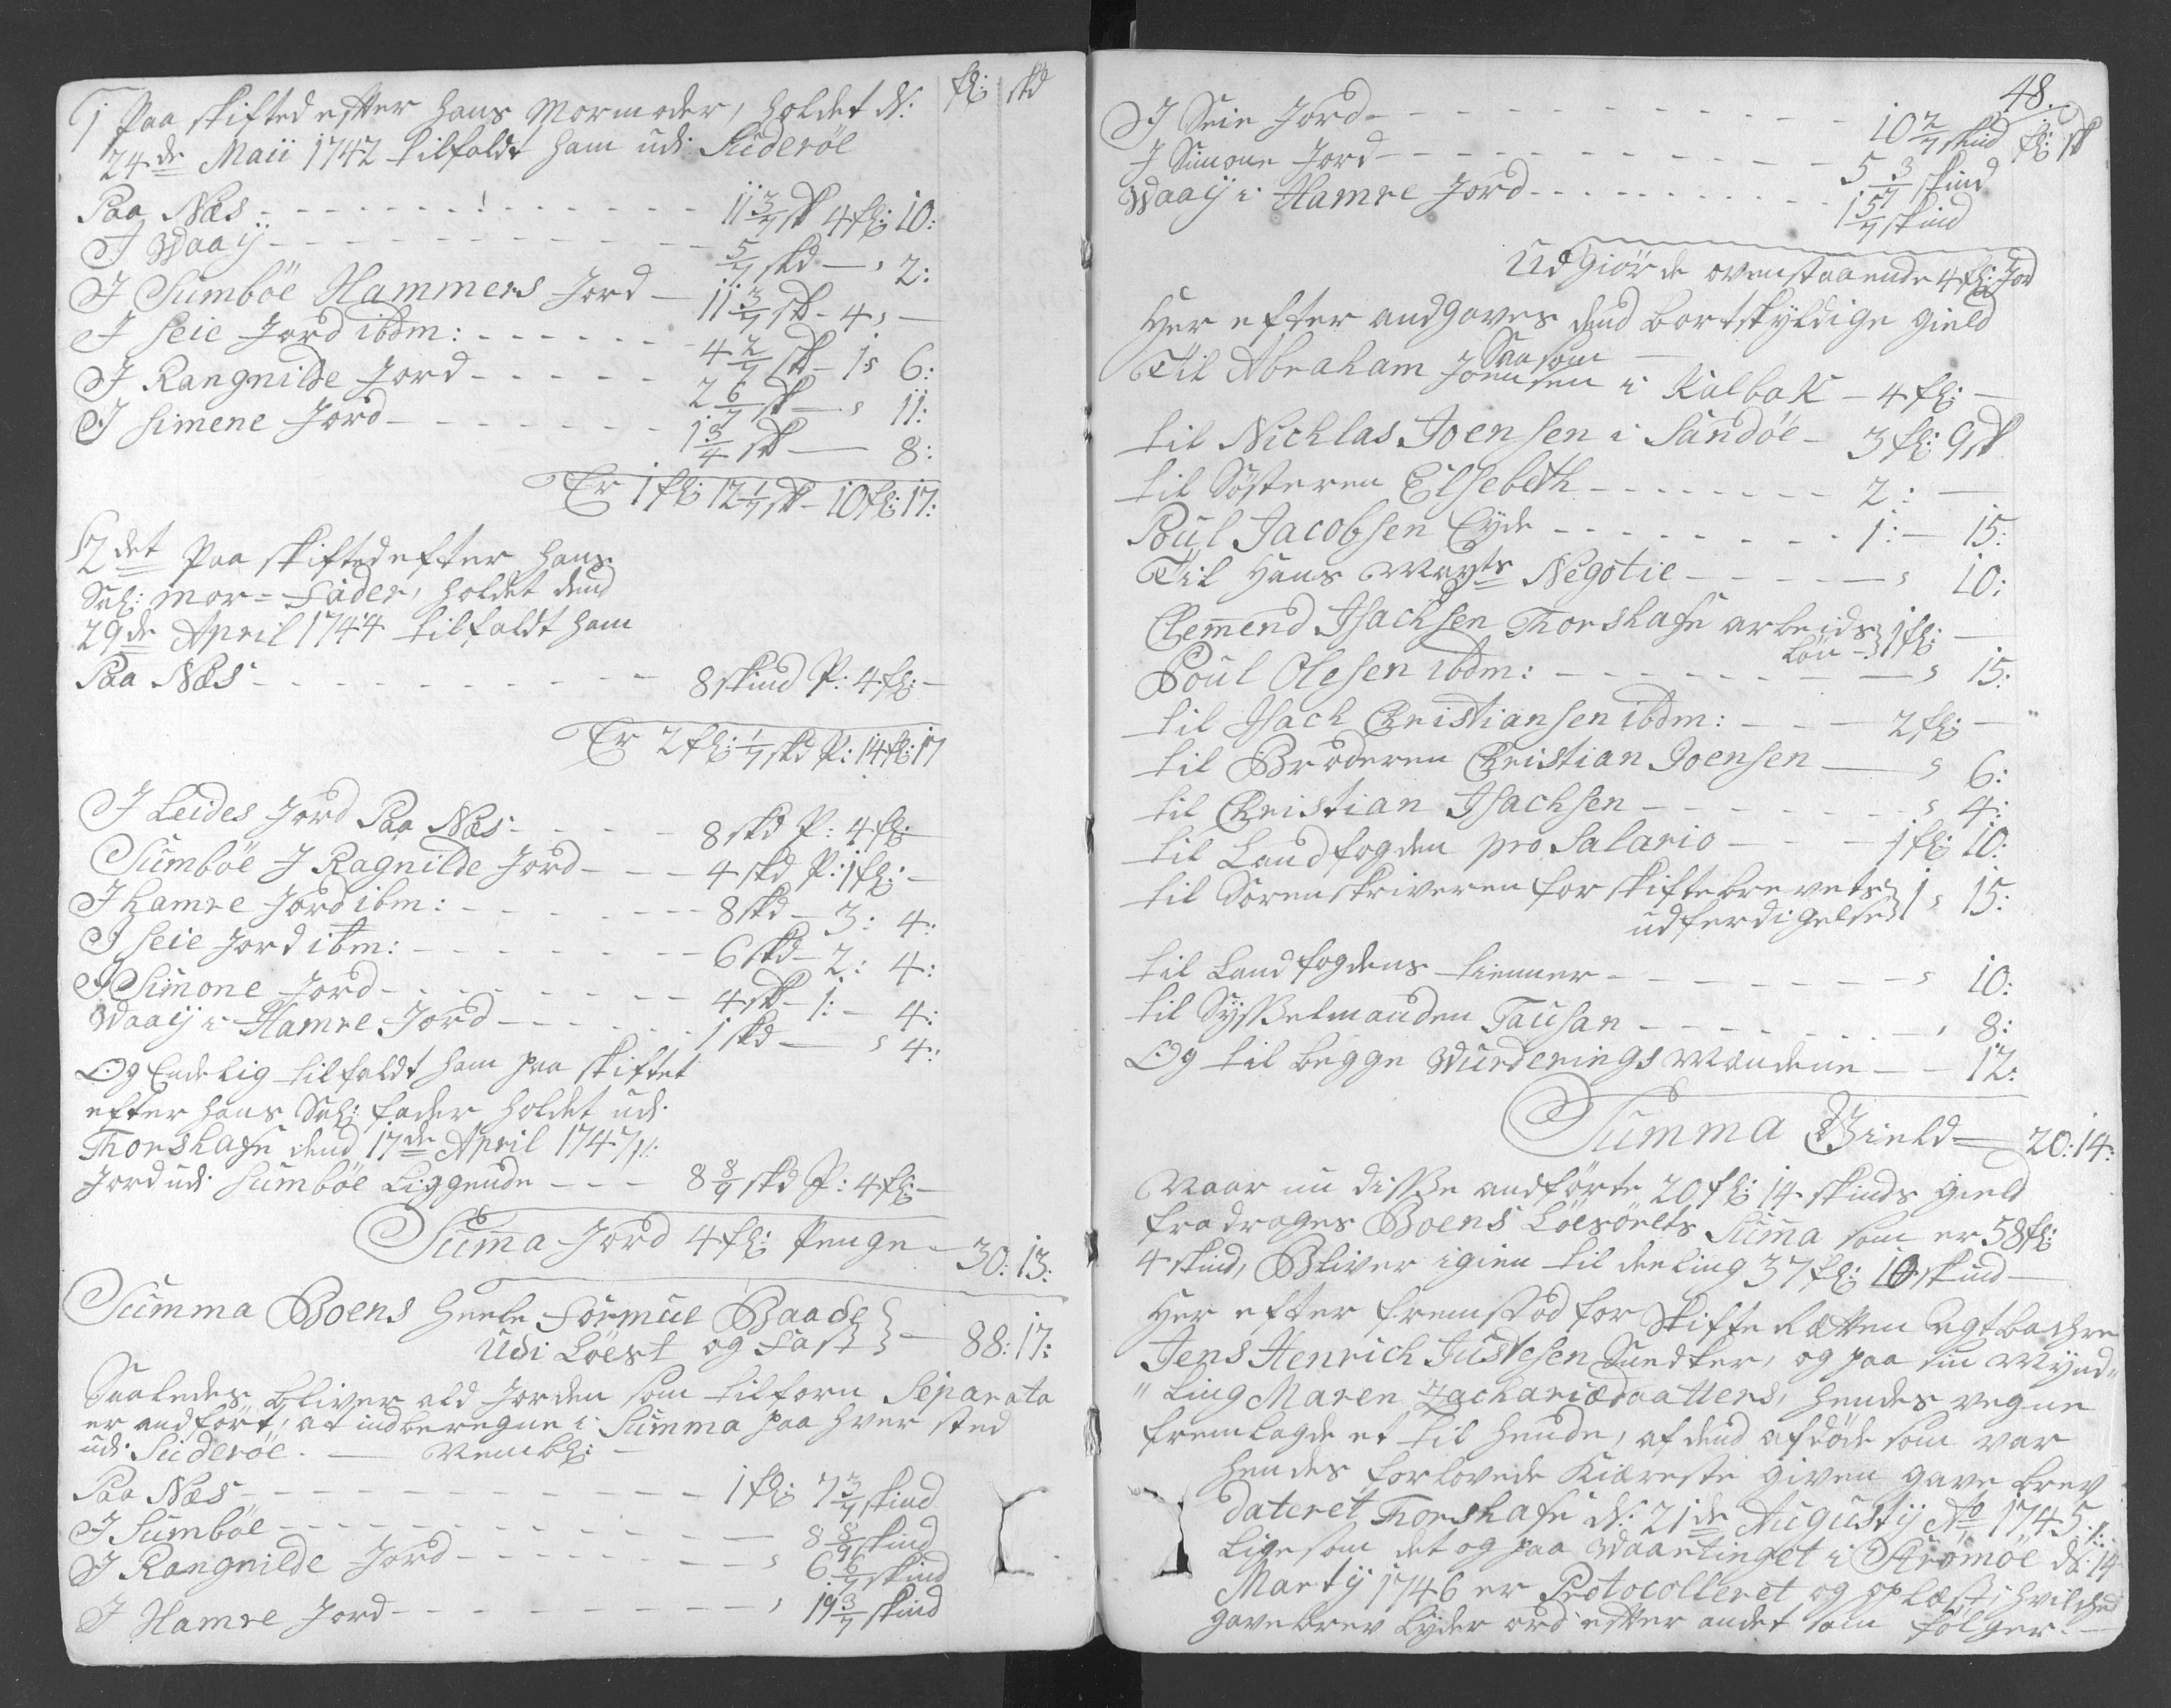 fl: skd
1 Paa skifted efter hans Mormoder, holdet d:
24de Maii 1742 tilfaldt ham udi Suderöe
Paa Næs - - - 11 3/7 sk 4 fl: 10:
I Waaij - - - 5/7 skd — , 2:
I Sumböe Hammers Jord — 11 3/7 sk - 4 , —
I Seie Jord ibdm: - - - 4 2/7 sk - 1 , 6:
I Rangnilde Jord - - - 2 6/7 sk — , 11:
I Simene Jord - - - 1 3/4 sk — 8:
Er 1 fl: 12 1/7 sk - 10 fl: 17:
2det Paa skifted efter hans
Sal: Mor-Fader, holdet dend
29de April 1744 tilfaldt ham
Paa Næs - - - 8 skind P: 4 fl: —
Er 2 fl: 1/7 skd P: 14 fl: 17
I Leides Jord Paa Næs - - - 8 skd P: 4 fl: —
Sumböe I Ragnilde Jord - - - 4 skd P: 1 fl: —
I Hamre Jord ibm: - - - 8 skd — 3: 4:
I Seie Jord ibm: - - - 6 skd — 2: 4:
I Simone Jord - - - 4 sk — 1: — 4:
Waaij i Hamre Jord - - - 1 skd — , 4:
Og Endelig tilfaldt ham paa skiftet
efter hans Sal: fader holdet udi
Thorshafn dend 17de April 1747
Jord udi Sumböe Liggende - - - 8 8/9 skd P: 4 fl: —
Suma Jord 4 fl: Penge — 30: 13:
Summa Boens heele Formue Baade
udi Löest og Fast — 88: 17:
Saaledes bliver ald Jorden som tilforn Separata
er andfört, at indberegne i Summa paa hver sted
udi Suderöe. — Nembl: —
Paa Næs - - - 1 fl: 7 3/7 skind
I Sumböe - - - 8 8/9 skind
I Rangnilde Jord - - - , 6 6/7 skind
I Hamre Jord - - - , 19 3/7 skind
48.
fl: sk
I Seie Jord - - - 10 2/7 skind
I Simone Jord - - - 5 3/7 skind
Waaij i Hamre Jord - - - 1 5/7 skind
Udgiör de ovenstaaende 4 fl: Jor
Her efter andgaves dend bortskyldige gield
Saasom
Til Abraham Joensen i Kalbak — 4 fl: —
til Nichlas Joensen i Sandöe — 3 fl: 9 sk
til Sösteren Elsebeth - - - 2: —
Poul Jacobsen Eyde - - - 1: — 15:
Til Hans Mayts Negotie - - - , 10:
Clemmend Isachsen Thorshafn arbeids
lön — 1 fl: —
Poul Olesen ibdm: - - - , 15:
til Isach Christiansen ibdm: - - - 2 fl: —
til Broderen Christian Joensen — , 6:
til Christian Isachsen - - - , 4:
til Landfogden pro Salario - - - 1 fl: 10:
til Sorenskriveren for skiftebrevets
udferdigelse 1 , 15:
til Landfogdens tienner - - - , 10:
til Sysselmanden Tausan - - - , 8:
Og til begge Vurderings Mændene — - 12:
Summa Gield — 20: 14:
Naar nu disse andförte 20 fl: 14 skinds gield
fradrages Boens Löesörets Suma som er 58 fl:
4 skind, Bliver igien til deeling 37 fl: 10 skind —
Her efter fremstod for Skifte Retten Agtbachre
Jens Henrich Justesen Snedker, og paa sin Mynd„
„ling Maren Zachariædaatters, hendes vegne
fremlagde et til hende, af dend afdöde som var
hendes forlovede Kiæreste given gave brev
dateret Thorshafn d: 21de Augustij Ao 1745
Ligesom det og paa Waartinget i Strömöe d: 14
Martij 1746 er Protocolleret og oplæst, hvilched
gavebrev Lyder ord efter andet som fölger. —